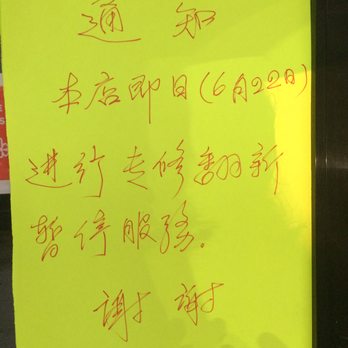 通 知
本店即日(6月22日)
进行专修翻新
暂停服务.
谢 谢